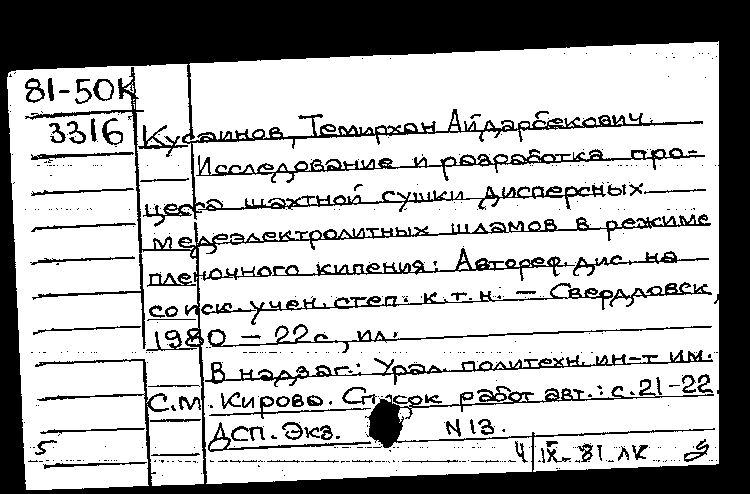 81-50К
3316 Кусаинов, Темирхан Айдарбекович.
Исследование и разработка про-
цесса шахтной сушки дисперсных
медеэлектролитных шламов в режиме
пленочного кипения: Автореф. дис. на
соиск. учен. степ. к.т.н. — Свердловск,
1980 — 22с., ил.
В надзаг.: Урал. политехн. ин-т им.
С.М. Кирова. Список работ авт.: с. 21-22.
ДСП. Экз. N 13.
5 4 IX- 81 ЛК